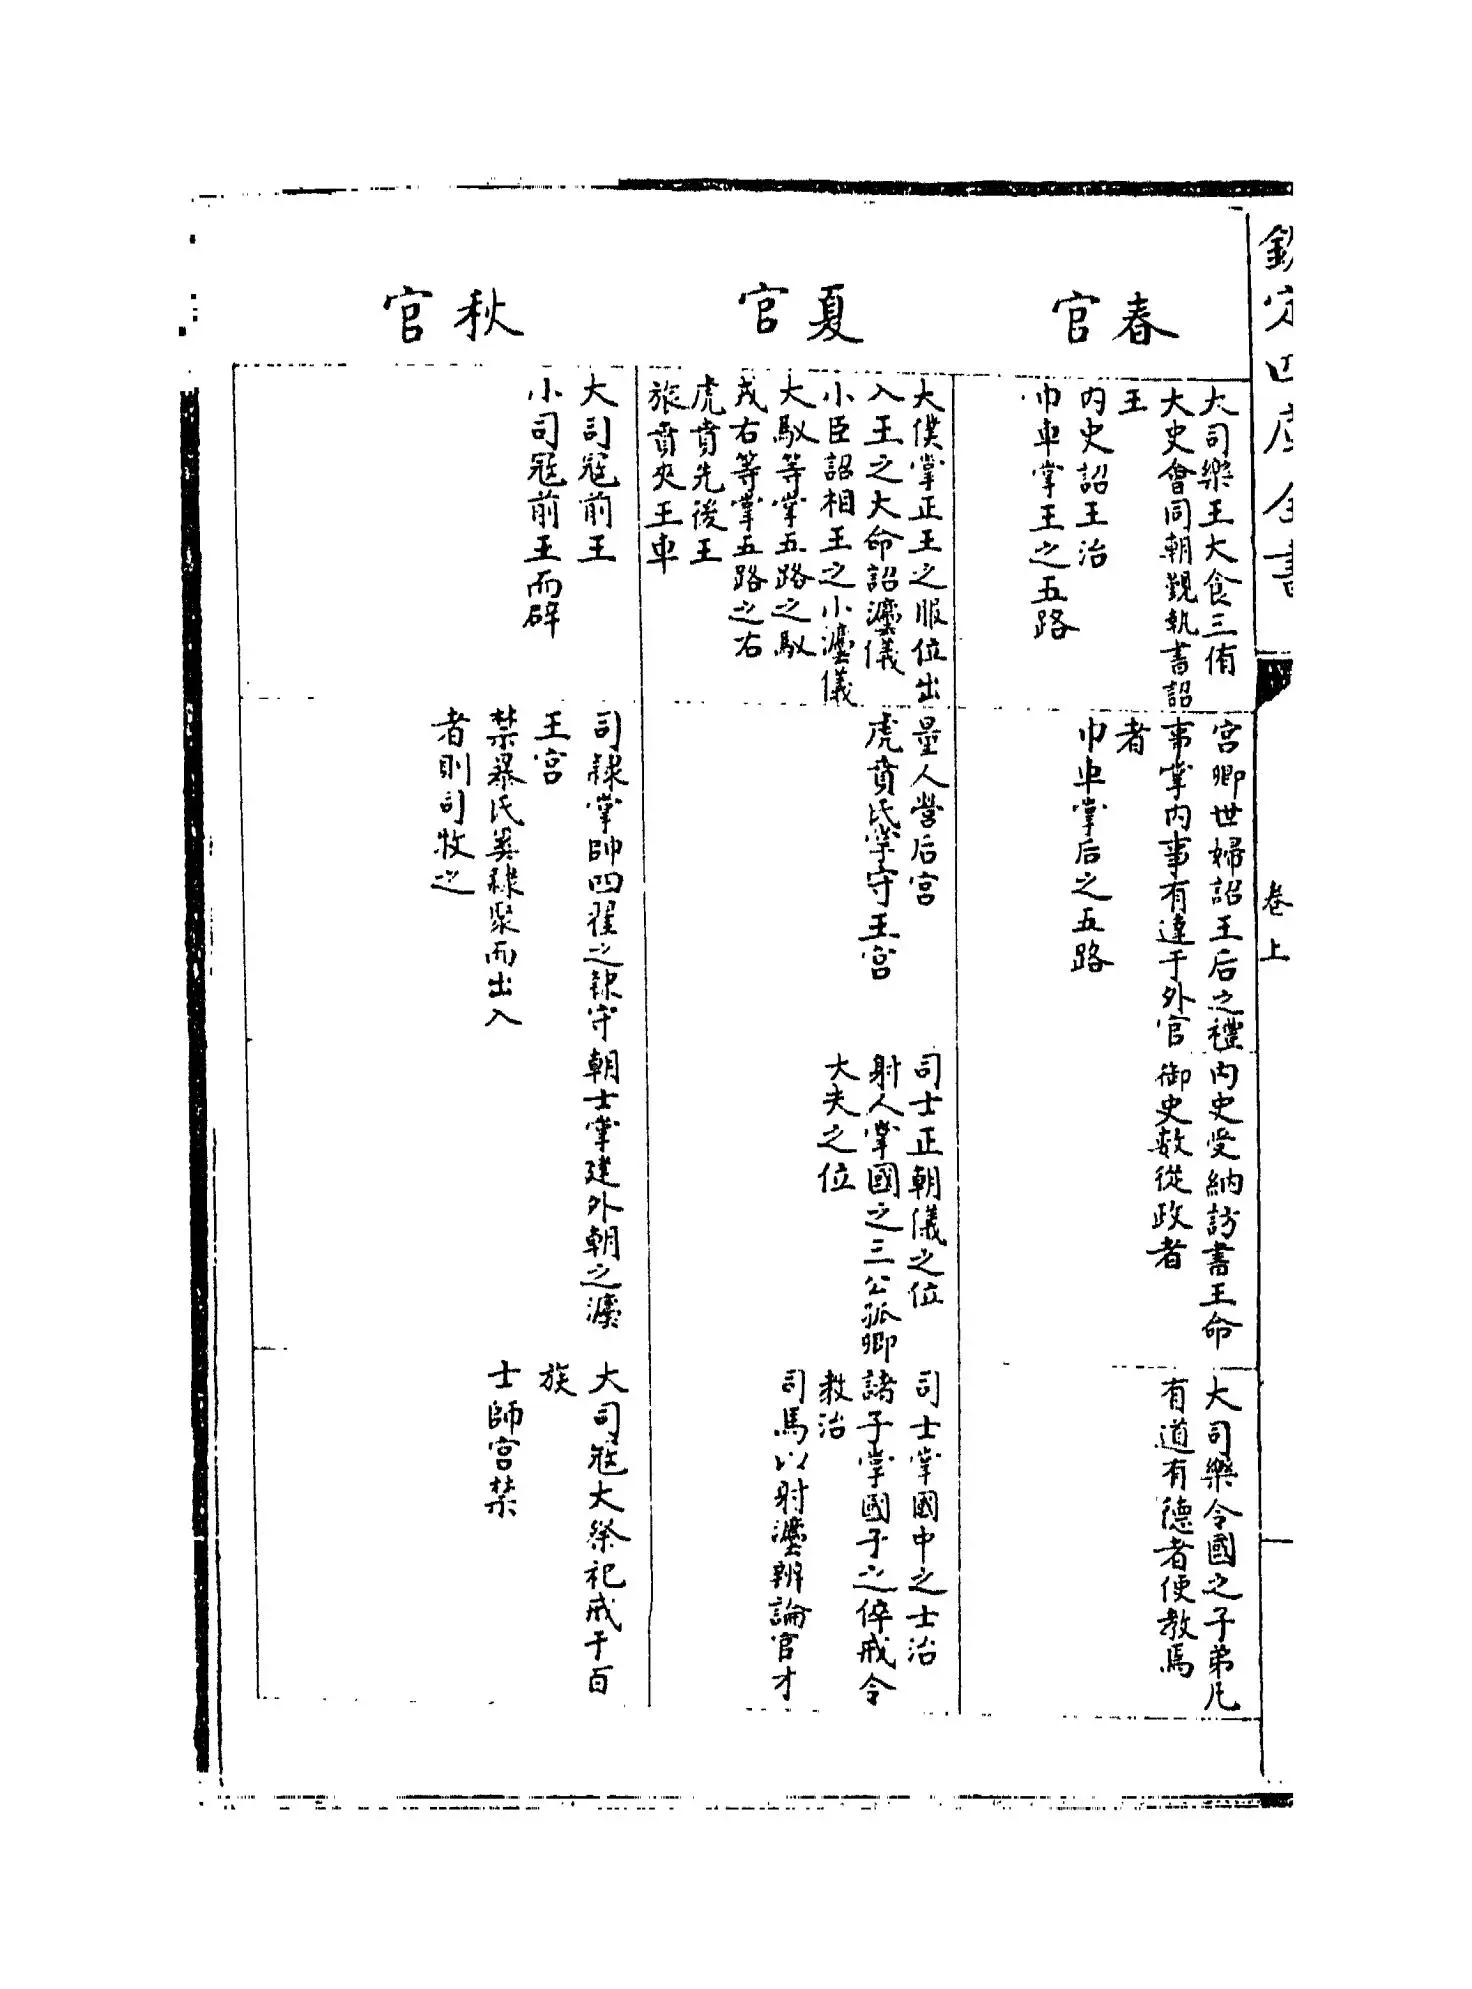 欽定四庫全書
卷上
春官
大司樂王大食三侑
大史會同朝覲執書詔
王
內史詔王治
巾車掌王之五路
宮卿世婦詔王后之禮
事掌內事有達于外官
者
巾車掌后之五路
內史受納訪書王命
御史數從政者
大司樂令國之子弟凡
有道有德者使教焉
夏官
大僕掌正王之服位出
入王之大命詔灋儀
小臣詔相王之小灋儀
大馭等掌五路之馭
戎右等掌五路之右
虎賁先後王
旅賁夾王車
量人營后宮
虎賁氏掌守王宮
司士正朝儀之位
射人掌國之三公孤卿
大夫之位
司士掌國中之士治
諸子掌國子之倅戒令
教治
司馬以射灋辨論官才
秋官
大司寇前王
小司寇前王而辟
司隸掌帥四翟之隸守
王宮
禁暴氏奚隸聚而出入
者則司牧之
朝士掌建外朝之灋
大司寇大祭祀戒于百
族
士師宮禁